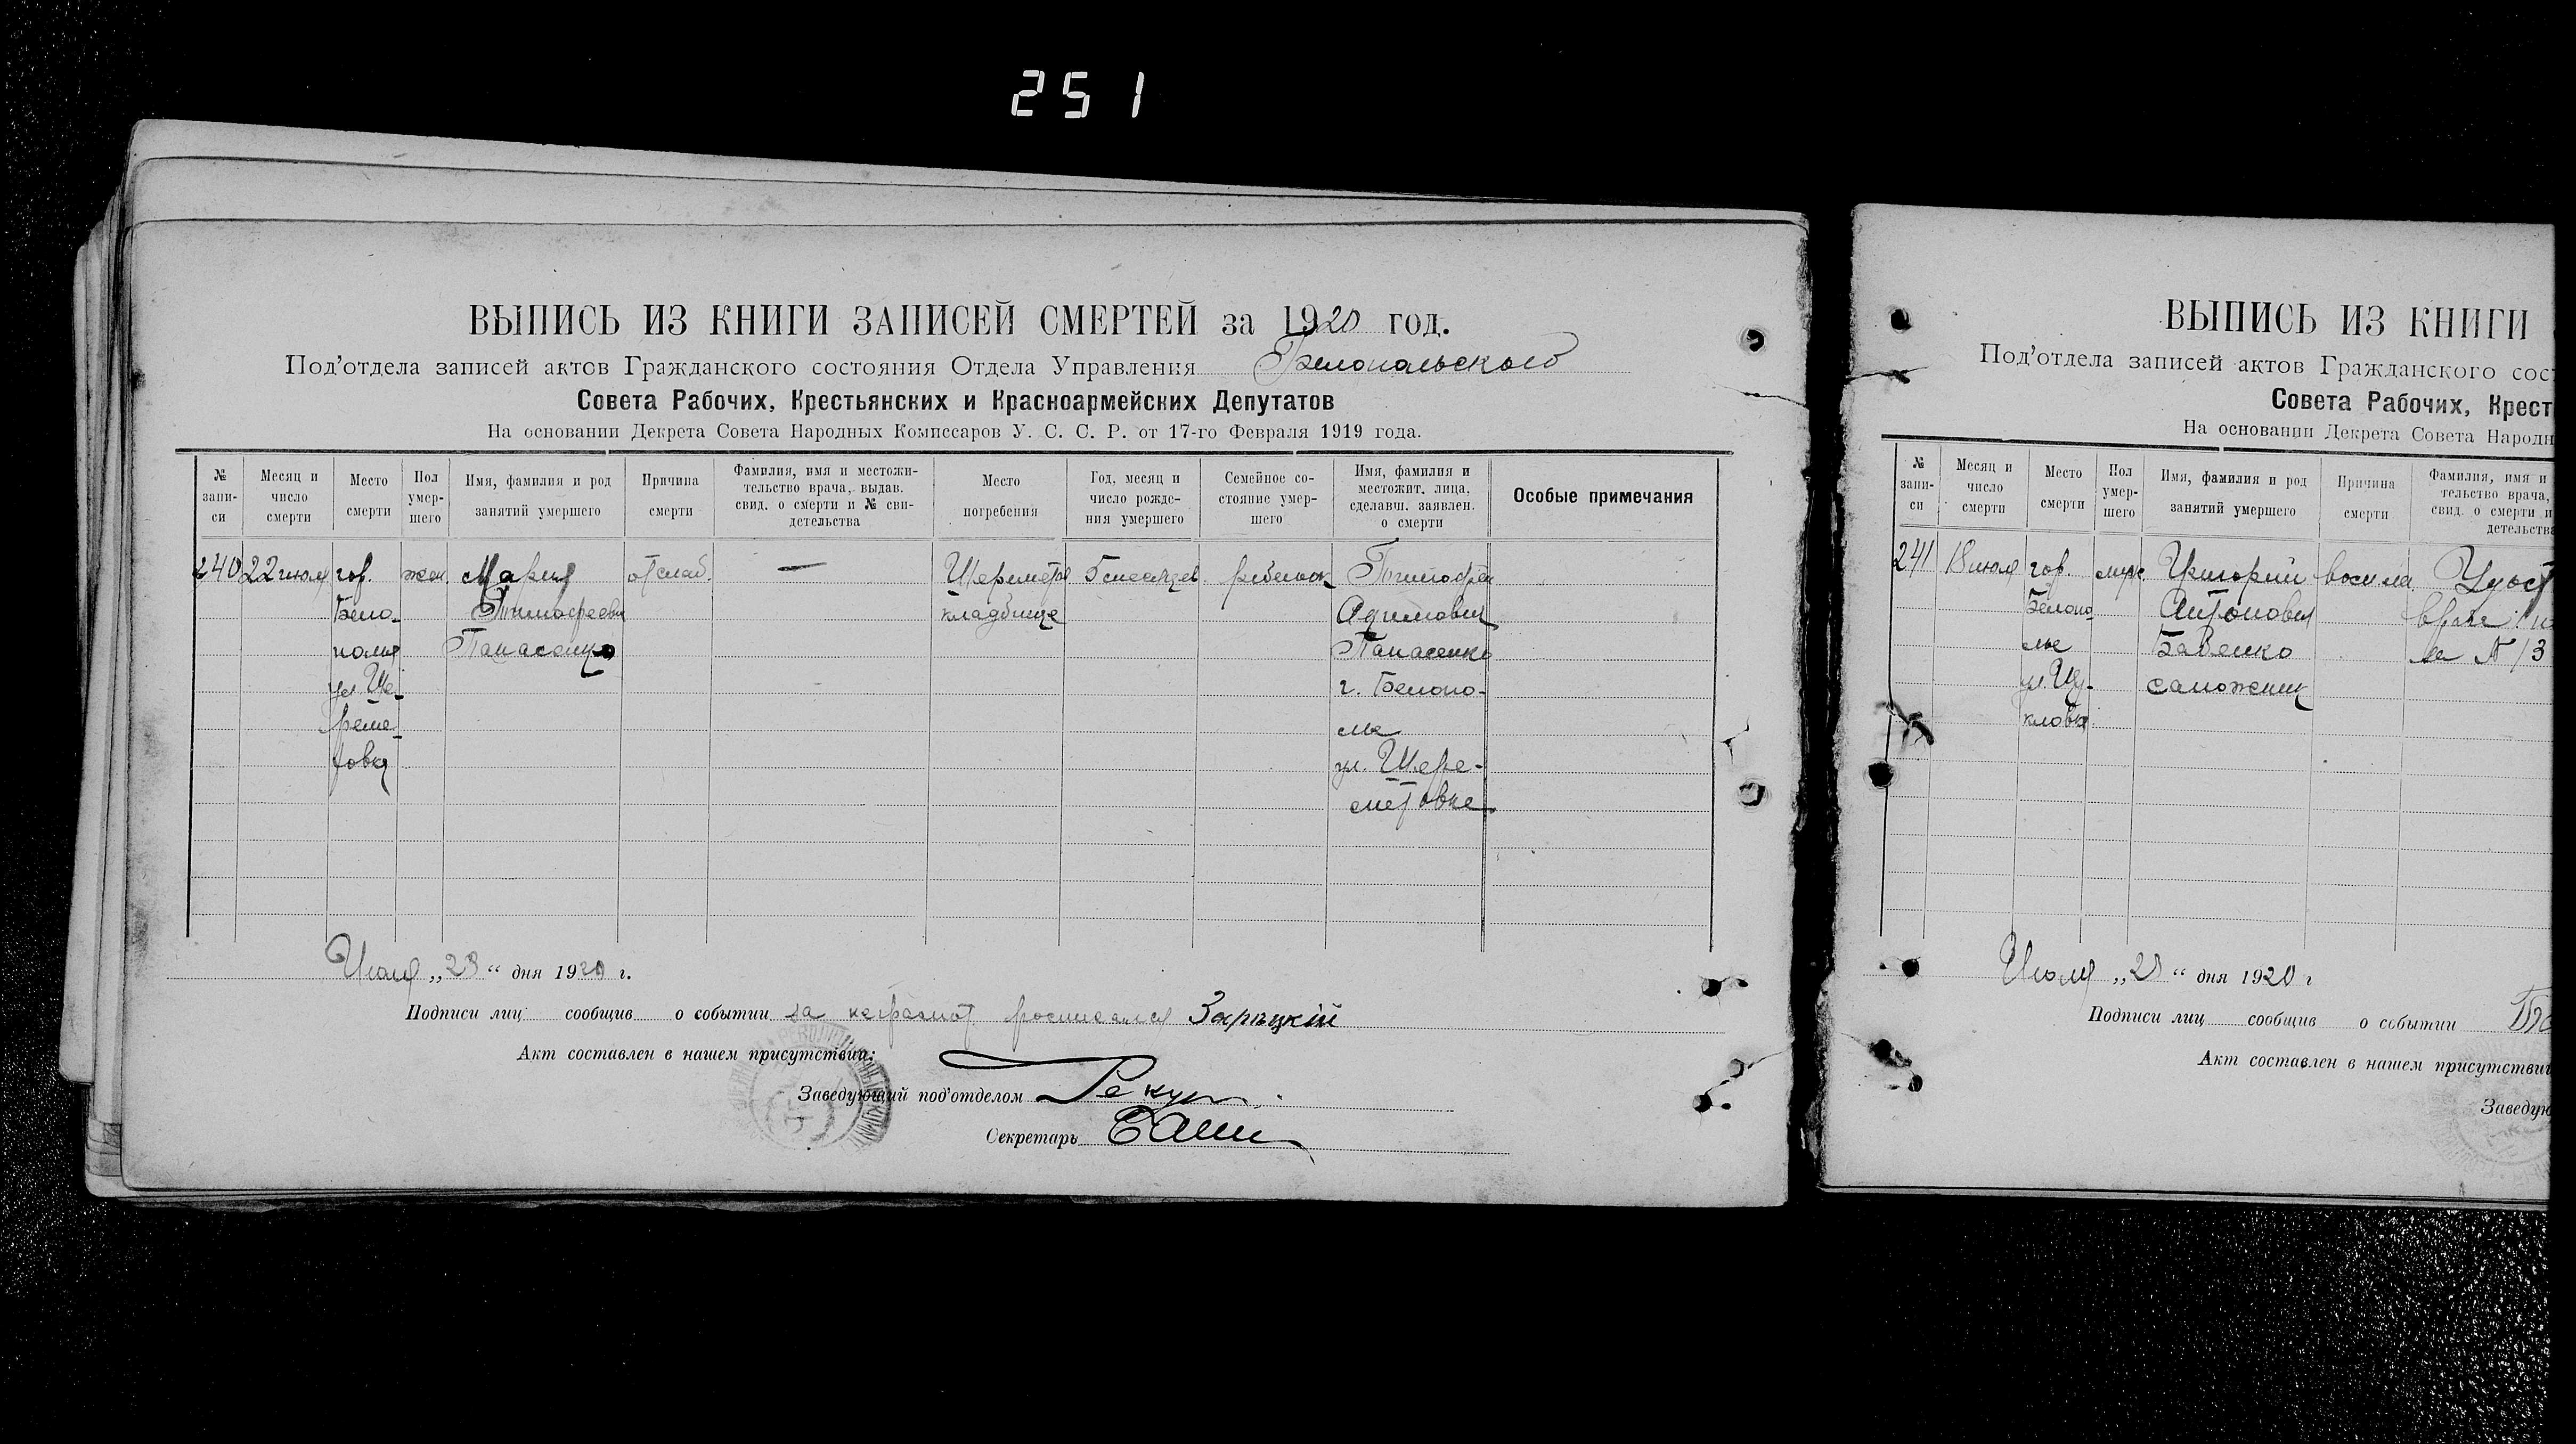 251
ВЫПИСЬ ИЗ КНИГИ ЗАПИСЕЙ СМЕРТЕЙ за 1920 год.
Под'отдела записей актов Гражданского состояния Отдела Управления Белопольского
Совета Рабочих, Крестьянских и Красноармейских Депутатов
На основании Декрета Совета Народных Комиссаров У. С. С. Р. от 17-го Февраля 1919 года.
№ запи-си
Месяц и число смерти
Место смерти
Пол умер-шего
Имя, фамилия и род занятий умершего
Причина смерти
Фамилия, имя и местожи-тельство врача, выдав. свид. о смерти и № сви-детельства
Место погребения
Год, месяц и число рожде-ния умершего
Семейное со-стояние умер-шего
Имя, фамилия и местожит. лица, сделавш. заявлен. о смерти
Особые примечания
240 22 июля гор. жен. Мария от слаб. — Шереметов 5 месяцев ребенок Тимофей
Бело- Тимофеевн кладбище Адимович
полья Панасенко Панасенко
ул. Ше- г. Белопо-
реме- лье
товка ул. Шере-
метовке
Июля „23“ дня 1920 г.
Подписи лиц сообщив о событии за неграмот росписался Зарѣцкій
Акт составлен в нашем присутствии:
Заведующий под'отделом
Секретарь
ВЫПИСЬ ИЗ КНИГИ
Под'отдела записей актов Гражданского сос
Совета Рабочих, Крест
На основании Декрета Совета Народн
№ запи-си
Месяц и число смерти
Место смерти
Пол умер-шего
Имя, фамилия и род занятий умершего
Причина смерти
Фамилия, имя и тельство врача, свид. о смерти и детельства
241 18 июля гор. муж. Григорий воспал. Удост
Белопо- Антонович врача
лье Бабенко за № 13
ул. Шу- сапожник
кловка
Июля „23“ дня 1920 г
Подписи лиц сообщив о событии
Акт составлен в нашем присутстви
Заведую